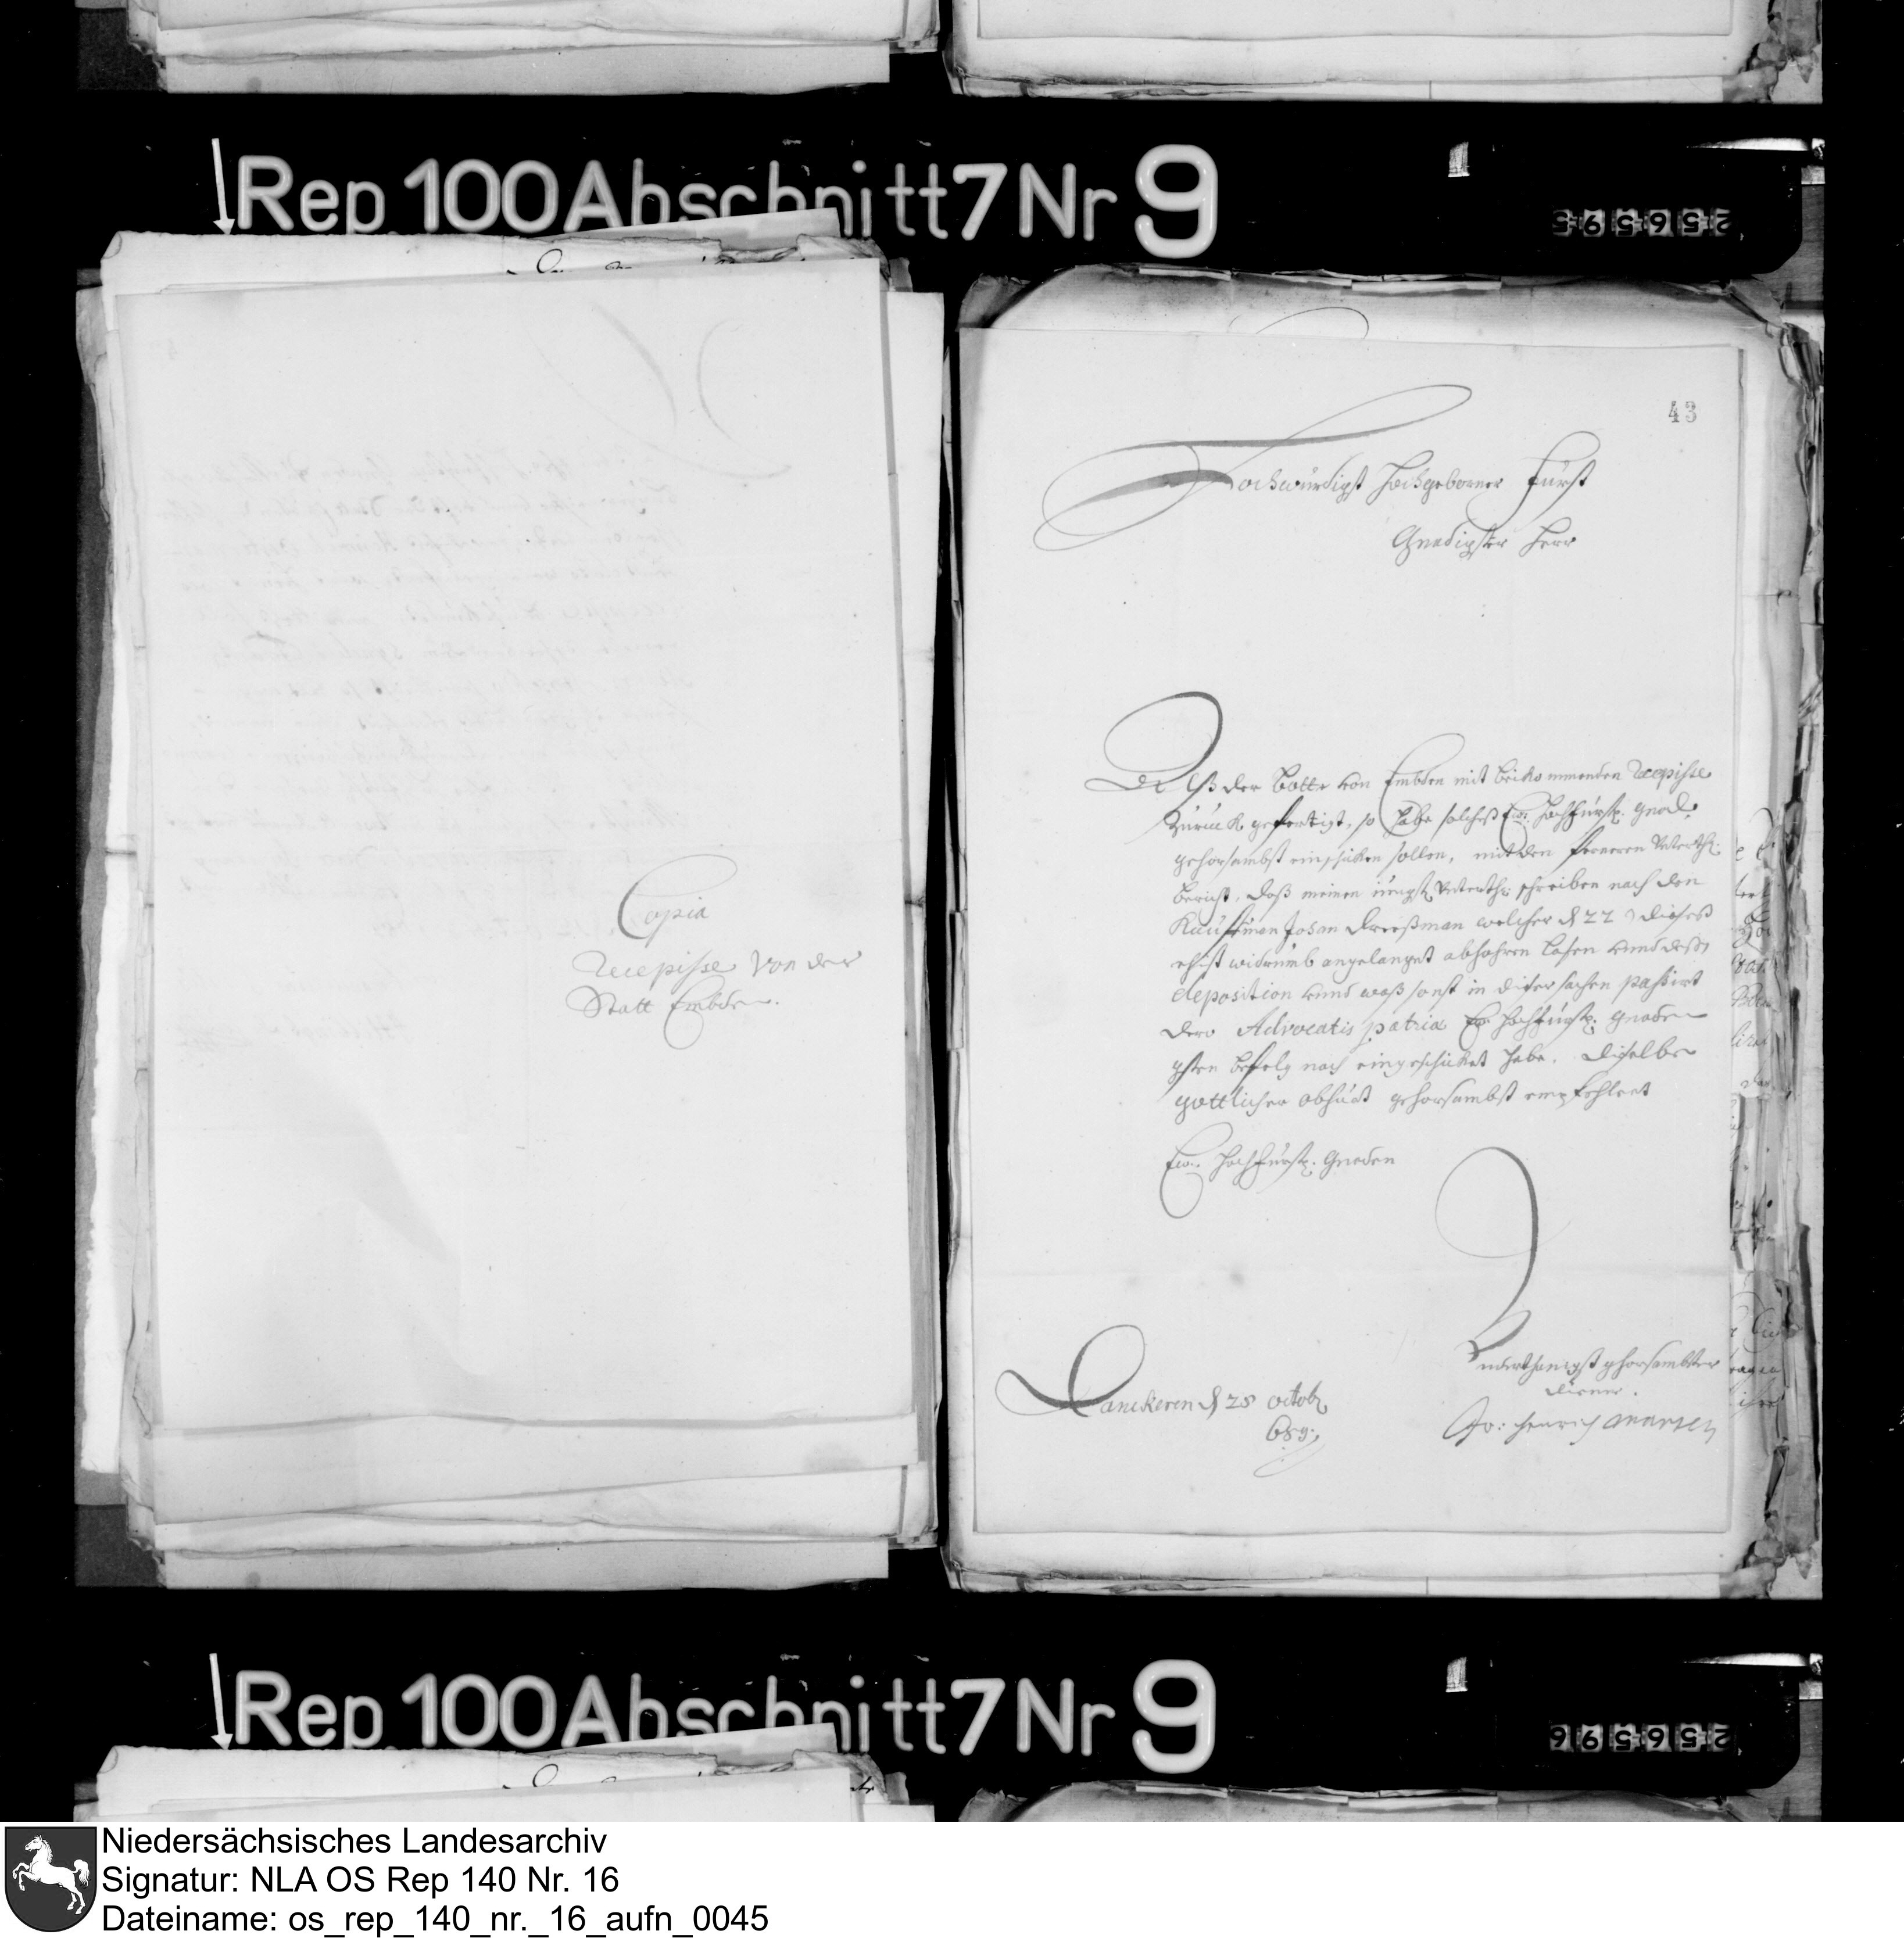 Rep. 100 Abschnitt 7 Nr 9
256595
Copia
Recepisse von der
Statt Embden.
43
Hochwürdigst Hochgeborner Fürst
Gnedigster Herr
Alß der botte von Embden mit beikommenden Recepisse
zurück gefertigt, so habe solches Ew: Hochfürstl: Gnad:
gehorsambst einschicken sollen, mit dem ferneren Unterth:
bericht, daß meinen jüngst Unterth: schreiben nach den
Kauffman Johan welcher d 22 dieses
widrumb angelanget abhohren lasen undt deßen
deposition undt waß sonst in diser sachen passirt
dero Advocatis patriae Ew Hochfürstl: Gnaden
gsten befelg nach eingeschicket habe. Dieselbe
göttlicher obhüdt gehorsambst empfehlent
Ew. Hochfürstl. Gnaden
Underthenigst gehorsambster
diener.
Lanckeren d 28 octob
689.
Henrich Mansen
Rep. 100 Abschnitt 7 Nr 9
256596
Niedersächsisches Landesarchiv
Signatur: NLA OS Rep 140 Nr. 16
Dateiname: os_rep_140_nr._16_aufn_0045